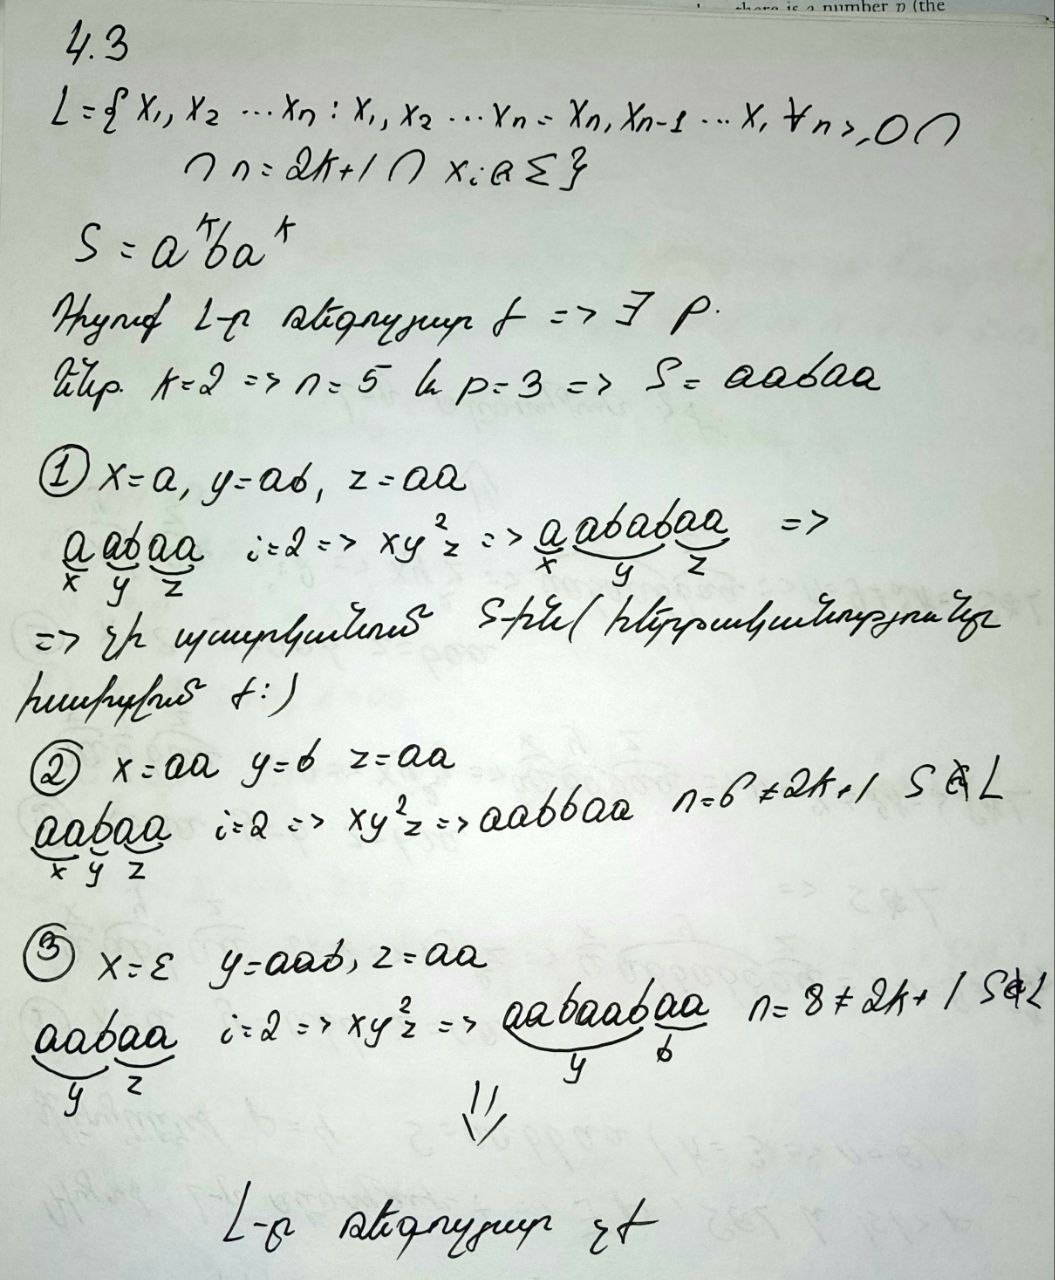 there is a number p (the
4.3
L={ x₁, x₂ ... xₙ : x₁, x₂ ... xₙ = xₙ, xₙ₋₁ ... x₁ ∀n ≥ 0 ∩
∩ n = 2k+1 ∩ xᵢ ∈ Σ}
S = aᵏbaᵏ
Դիցուք L-ը ռեգուլյար է => ∃ p.
Ենթ. k=2 => n=5 և p=3 => S= aabaa
① x=a, y=ab, z=aa
aabaa i=2 => xy²z => aababaa =>
x y z x y z
=> չի պատկանում S-ին (հերթականությունը
խախտվում է:)
② x=aa y=b z=aa
aabaa i=2 => xy²z => aabbaa n=6≠2k+1 S ∉ L
x y z
③ x=ε y=aab, z=aa
aabaa i=2 => xy²z => aabaabaa n=8≠2k+1 S∉L
y z y b
⇓
L-ը ռեգուլյար չէ